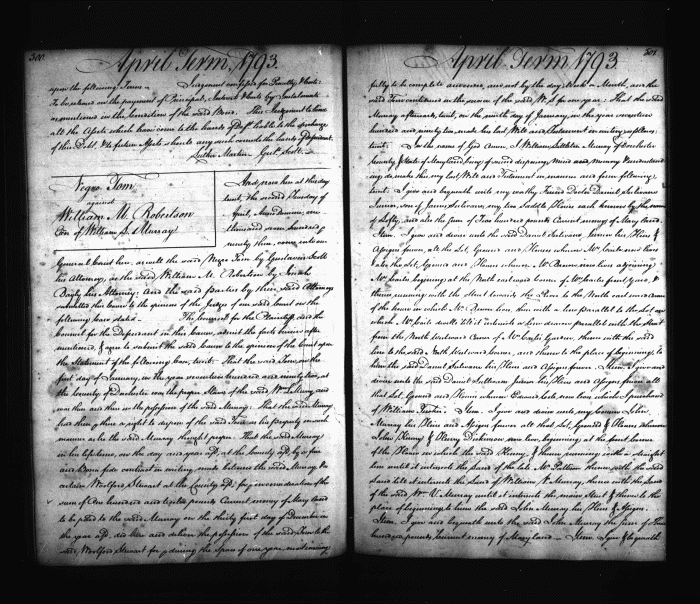 300
April Term, 1793.
upon the following Terms Judgment confessed for Penalty & Costs
To be released on the payment of Principal, Interest & Costs by
as mentioned in the Condition of the said Bond. This Judgment to bind
all the Assets which have come to the hands of Deft liable to the discharge
of this Debt, & to future Assets should any such come to the hands of Defendant.
Luther Martin Genl.
Negro Tom
against
William M. Robertson
Exr. of William S. Murray
And now here at this day
to wit, the second Tuesday of
April, Anno domini, one
thousand seven hundred &
ninety three, come into our
General Court here, as well the said Negro Tom by Gustavus Scott
his Attorney, as the said William M. Robertson by Josiah
Bayly his Attorney: And the said parties by their said Attornies
submitted this cause to the opinion of the Judges of our said Court on the
following case stated. The Counsel for the Plaintiff and the
Counsel for the Defendant in this cause, admit the facts herein after
mentioned, & agree to submit the said cause to the opinion of the Court upon
the Statement of the following case, to wit. That the said Tom, on the
first day of January, in the year seventeen hundred and ninety two, at
the County of Dorchester was the proper Slave of the said Wm S. Murray and
was then and there in the possession of the said Murray: That the said Murray
had then & there a right to dispose of the said Tom as his property in such
manner as he the said Murray thought proper. That the said Murray
in his life time, on the day and year afd, at the County afd, by a fair
and bona fide contract in writing made between the said Murray &
certain Woolford Stewart at the County afd, for & in consideration of the
sum of One hundred and twelve pounds Current money of Maryland
to be paid to the said Murray on the thirty first day of December in
the year afd, did hire and deliver the possession of the said Tom to the
said Woolford Stewart for & during the Span of one year,
301
April Term, 1793.
fully to be complete and ended, and not by the day, Week or Month, and the
said Tom continued in the service of the said W. S. for one year: That the said
Murray afterwards, to wit, on the ninth day of January, in the year seventeen
hundred and ninety two, made his last Will and Testament in writing as follows,
to wit: In the name of God Amen, I, William Murray of Dorchester
County & State of Maryland, being of sound disposing Mind and Memory
do make this my last Will and Testament in manner and form following,
to wit: I give and bequeath unto my worthy Friend Doctor Daniel Sulivane
Junior, son of James Sulivane, my two Horses each known by the name
of Lofty, and also the sum of Five hundred pounds Current money of Maryland.
Item. I give and devise unto the said Daniel Sulivane, Junior his Heirs &
Assigns forever, all the Lot, Ground and Houses where Mr. now lives
& also the Lot, Ground and Houses where Mr. now lives adjoining
Mr. beginning at the North east ward corner of Mr. front, and
thence running with the Street towards the River to the North east ward corner
of the house in which Mr. lives, then with a line parallel to the Lot on
which Mr. dwells till it intersects a line drawn parallel with the Street
from the North Westward Corner of Mr. Garden, thence with the said
line to the said North Westward corner, and thence to the place of beginning, to
him the said Daniel Sulivane his Heirs and Assigns forever. Item. I give and
devise unto the said Daniel Sulivane Junior his Heirs and Assigns forever all
that Lot, Ground and Houses wherein Edward now lives which I purchased
of William Item. I give and devise unto my cousin John
Murray his Heirs and Assigns forever all that Lot, Ground & Houses whereon
John & Henry Dickinson now live, beginning at the first corner
of the House in which the said Henry & thence running with a straight
line until it intersects the Land of the late Mr. Pattison thence with the said
Land till it intersects the Land of William V. Murray, thence with the Land
of the said Wm V. Murray until it intersects the main Street & thence to the
place of beginning to him the said John Murray his Heirs & Assigns.
Item. I give and bequeath unto the said John Murray the sum of
hundred pounds current money of Maryland. Item. I give & bequeath